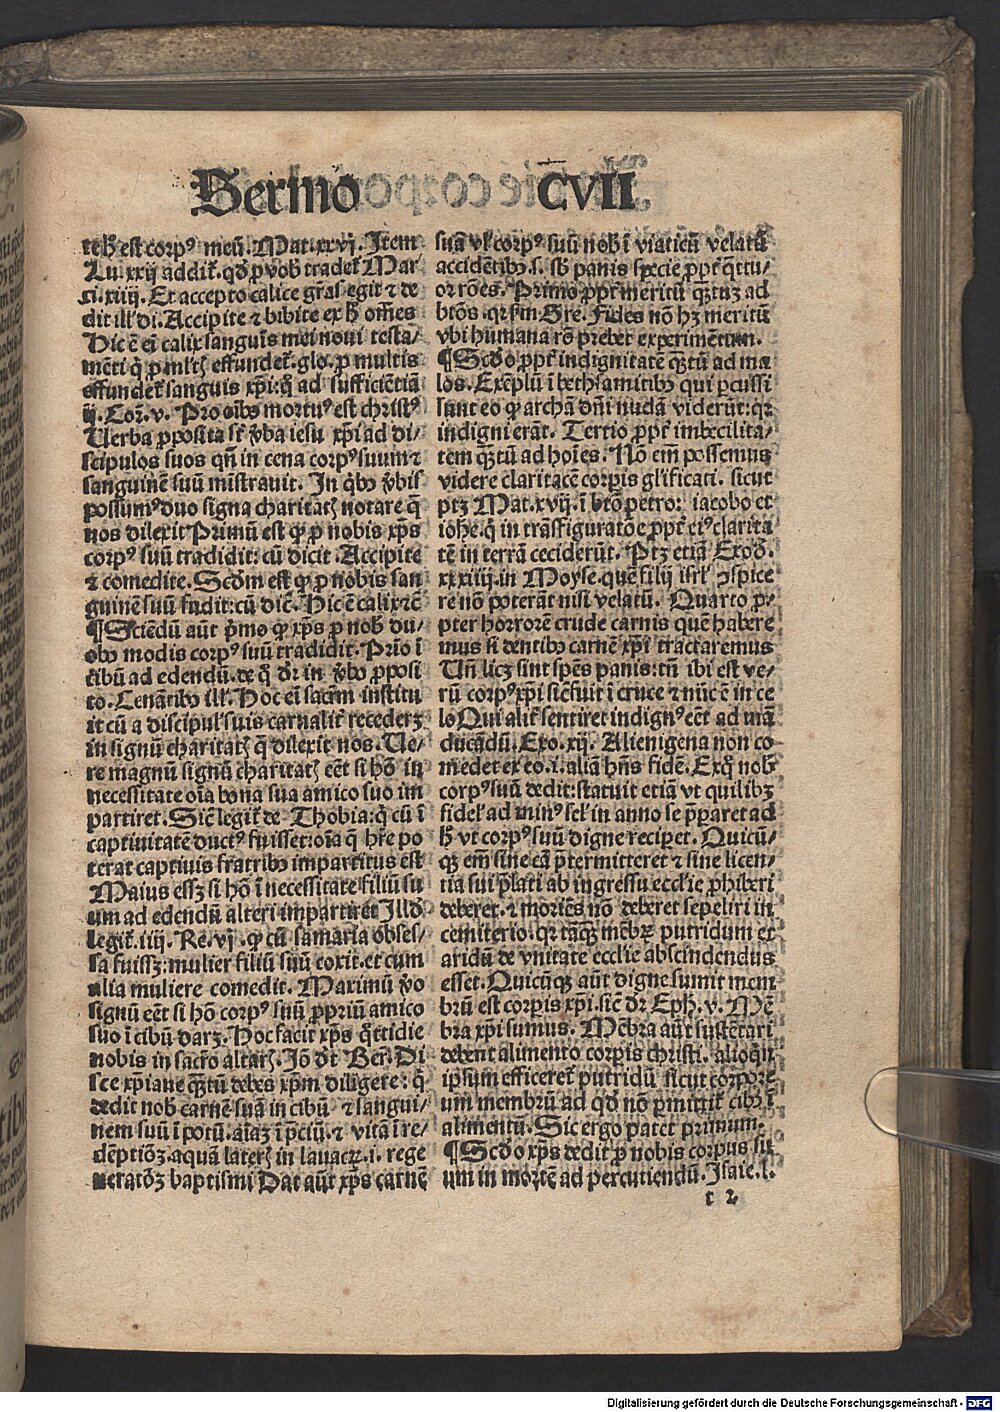 Sermo CVII
te h̄ est corpꝰ meū. Mat. xxvj. Item
Lu. xxij addit᷑. qd̓ ꝓ vob tradet᷑ Mar
ci. xiiij. Et accepto calice gr̄as egit ⁊ de
dit ill' di. Accipite ⁊ bibite ex h̄ om̄es
Hic ē ei calix sanguis mei noui testa/
mēti q̇ ꝓ ml'tꝭ effundet᷑. glo. ꝓ multis
effundet᷑ sanguis xp̄i: q̇ ad sufficiētiā
ij. Cor. v. Pro oībꝰ mortuꝰ est christꝰ
Uerba ꝓposita st̄ v̓ba iesu xp̄i ad di/
scipulos suos qn̄ in cena corpꝰ suum ⁊
sanguinē suū mīstrauit. In q̇bꝰ v̓bis
possumꝰ duo signa charitatꝭ notare q̇
nos dilexit Primū est ꝙ ꝓ nobis xp̄s
corpꝰ suū tradidit: cū dicit. Accipite
⁊ comedite. Scd̓m est ꝙ ꝓ nobis san
guinē suū fudit: cū dic̄. Hic ē calix ⁊c̄
¶ Sciēdū aūt p̓mo ꝙ xp̄s ꝓ nob̄ du/
obꝰ modis corpꝰ suū tradidit. Prīo ī
cibū ad edendū. de q̇ d̓r in v̓bꝰ ꝓposi
to. Cenātibꝰ ill'. Hoc ei sac̄m institu
it cū a discipul' suis carnalit᷑ recederꝫ
in signū charitatꝭ q̇ dilexit nos. Ue/
re magnū signū charitatꝭ eēt si hō in
necessitate oīa bona sua amico suo im
partiret. Sic̄ legit᷑ de Thobia: q̇ cū ī
captiuitatē ductꝰ fuisset: oīa q̇ hr̄e po
terat captiuis fratribꝰ impartitus est
Maius essꝫ si hō ī necessitate filiū su
um ad edendū alteri impartiret Illd̓
legit᷑. iiij. Re. vj. ꝙ cū samaria obses/
sa fuissꝫ: mulier filiū suū coxit. et cum
alia muliere comedit. Maximū v̓o
signū eēt si hō corpꝰ suū ꝓpriū amico
suo ī cibū darꝫ. Hoc facit xp̄s q̇ttidie
nobis in sacr̄o altarꝭ. Iō d̓t Ber. Di
sce xp̄iane qꝫtū debes xp̄m diligere: q̇
dedit nob̄ carnē suā in cibū ⁊ sangui/
nem suū ī potū. aīaꝫ ī p̄ciū. ⁊ vitā ī re/
dēptiōꝫ. aquā laterꝭ in lauacꝝ. i. rege
neratōꝫ baptismi Dat aūt xp̄s carnē
suā vl' corpꝰ suū nob̄ ī viaticū velatū
accidētibꝰ. s. sb̄ panis specie ꝓpt᷑ q̇ttu/
or rōes. Primo ꝓpt᷑ meritū qꝫtuꝫ ad
btōs. qꝛ fm Gre. Fides nō hꝫ meritū
vbi humana rō prebet experimētum.
¶ Scd̓o ꝓpt᷑ indignitatē qꝫtū ad ma
los. Exēplū ī bethsamitibꝰ qui ꝑcussi
sunt eo ꝙ archā dn̄i nudā viderūt: qꝛ
indigni erāt. Tertio ꝓpt᷑ imbecilita/
tem qꝫtū ad hoīes. Nō em̄ possemus
videre claritatē corpis gl'ificati. sicut
ptꝫ Mat. xvij. ī btō petro: iacobo et
iohe. q̇ in trāsfiguratōe ꝓpt᷑ eiꝰ clarita
tē in terrā ceciderūt. Ptꝫ etiā Exod̓.
xxxiiij. in Moyse. quē filij isrl' ꝯspice
re nō poterāt nisi velatū. Quarto ꝓ/
pter horrorē crude carnis quē habere
mus si dentibꝰ carnē xp̄i tractaremus
Un̄ licꝫ sint spēs panis: tn̄ ibi est ve/
rū corpꝰ xp̄i sic̄ fuit ī cruce ⁊ nūc ē in ce
lo Qui alit᷑ sentiret indignꝰ eēt ad mā
ducādū. Exo. xij. Alienigena non co
medet ex eo. i. aliā hn̄s fidē. Ex q̇ nob̄
corpꝰ suū dedit: statuit etiā vt quilibꝫ
fidel' ad minꝰ sel' in anno se p̄pararet ad
h̄ vt corpꝰ suū digne recipet. Quicū/
qꝫ em̄ sine cā p̄termitteret ⁊ sine licen/
tia sui p̄lati ab ingressu eccl'ie ꝓhiberi
deberet. ⁊ moriēs nō deberet sepeliri in
cemiterio. qꝛ tāqꝫ mēbꝝ putridum et
aridū de vnitate eccl'ie abscindendus
esset. Quicūqꝫ aūt digne sumit mem
brū est corpis xp̄i. sic̄ d̓r Eph̄. v. Mē
bra xp̄i sumus. Mēbra aūt sustētari
debent alimento corpis christi. alioq̇n
ipsum efficeret᷑ putridū sicut corpore
um membrū ad qd̓ nō ꝑmittit᷑ cibꝰ ī
alimentū. Sic ergo patet primum.
¶ Scd̓o xp̄s dedit ꝓ nobis corpus su
um in mortē ad percutiendū. Isaie. l.
c 2
Digitalisierung gefördert durch die Deutsche Forschungsgemeinschaft - DFG